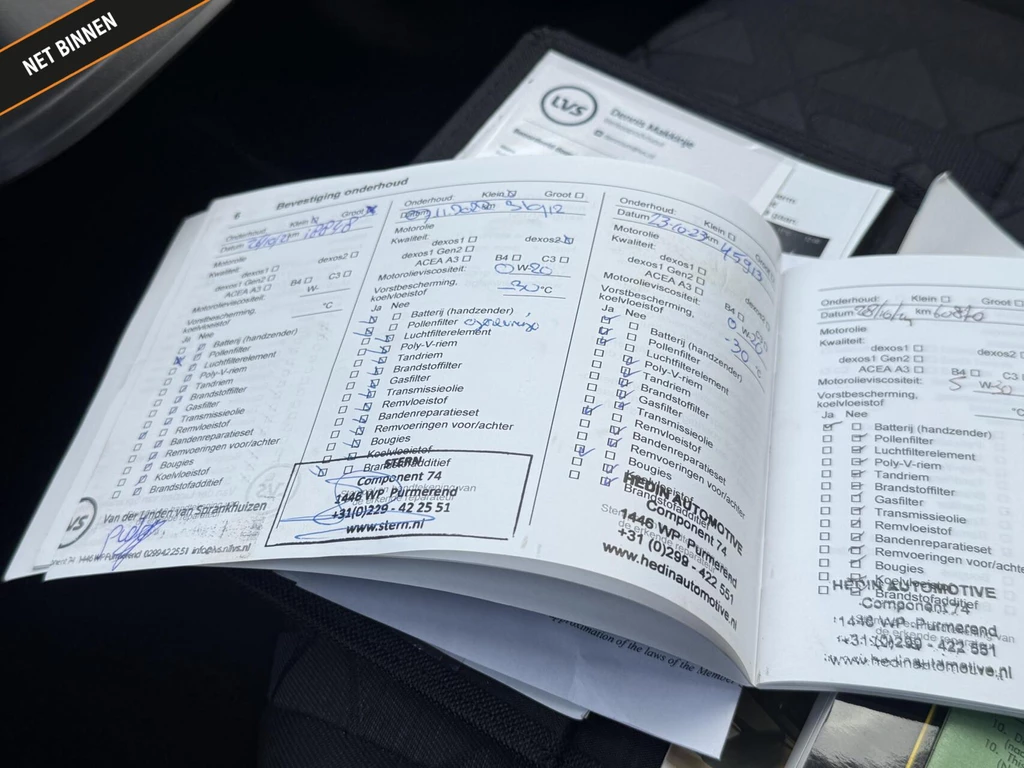 NET BINNEN
LVS
Dennis Makkinje
6 Bevestiging onderhoud
Onderhoud: Klein Groot
Datum km
Motorolie
Kwaliteit: dexos1 dexos2
dexos1 Gen2
ACEA A3 B4 C3
Motorolieviscositeit: W-
Vorstbescherming, °C
koelvloeistof
Ja Nee
Batterij (handzender)
Pollenfilter
Luchtfilterelement
Poly-V-riem
Tandriem
Brandstoffilter
Gasfilter
Transmissieolie
Remvloeistof
Bandenreparatieset
Remvoeringen voor/achter
Bougies
Koelvloeistof
Brandstofadditief
VS Van der Linden van Sprankhuizen
1446 WP Purmerend 0299-42 25 51
Onderhoud: Klein Groot
31012
Motorolie
Kwaliteit: dexos1 dexos2
dexos1 Gen2
ACEA A3 B4 C3
Motorolieviscositeit: 0 W-20
Vorstbescherming, -30 °C
koelvloeistof
Ja Nee
Batterij (handzender)
Pollenfilter
Luchtfilterelement
Poly-V-riem
Tandriem
Brandstoffilter
Gasfilter
Transmissieolie
Remvloeistof
Bandenreparatieset
Remvoeringen voor/achter
Bougies
Koelvloeistof
Brandstofadditief
STERN
Component 74
1446 WP Purmerend
+31(0)229 - 42 25 51
www.stern.nl
Onderhoud: Klein
Datum 23-10-23 km 45913
Motorolie
Kwaliteit: dexos1
dexos1 Gen2
ACEA A3 B4
Motorolieviscositeit: 0 W20
Vorstbescherming, -30 °C
koelvloeistof
Ja Nee
Batterij (handzender)
Pollenfilter
Luchtfilterelement
Poly-V-riem
Tandriem
Brandstoffilter
Gasfilter
Transmissieolie
Remvloeistof
Bandenreparatieset
Remvoeringen voor/achter
Bougies
Koelvloeistof
Brandstofadditief
HEDIN AUTOMOTIVE
Component 74
1446 WP Purmerend
+31 (0)299 - 422 551
www.hedinautomotive.nl
Onderhoud: Klein Groot
Datum km
Motorolie
Kwaliteit: dexos1 dexos2
dexos1 Gen2
ACEA A3 B4 C3
Motorolieviscositeit: 5 W-30
Vorstbescherming,
koelvloeistof
Ja Nee
Batterij (handzender)
Pollenfilter
Luchtfilterelement
Poly-V-riem
Tandriem
Brandstoffilter
Gasfilter
Transmissieolie
Remvloeistof
Bandenreparatieset
Remvoeringen voor/achter
Bougies
Koelvloeistof
Brandstofadditief
HEDIN AUTOMOTIVE
Component 74
1446 WP Purmerend
+31 (0)299 - 422 551
www.hedinautomotive.nl
of the laws of the Member